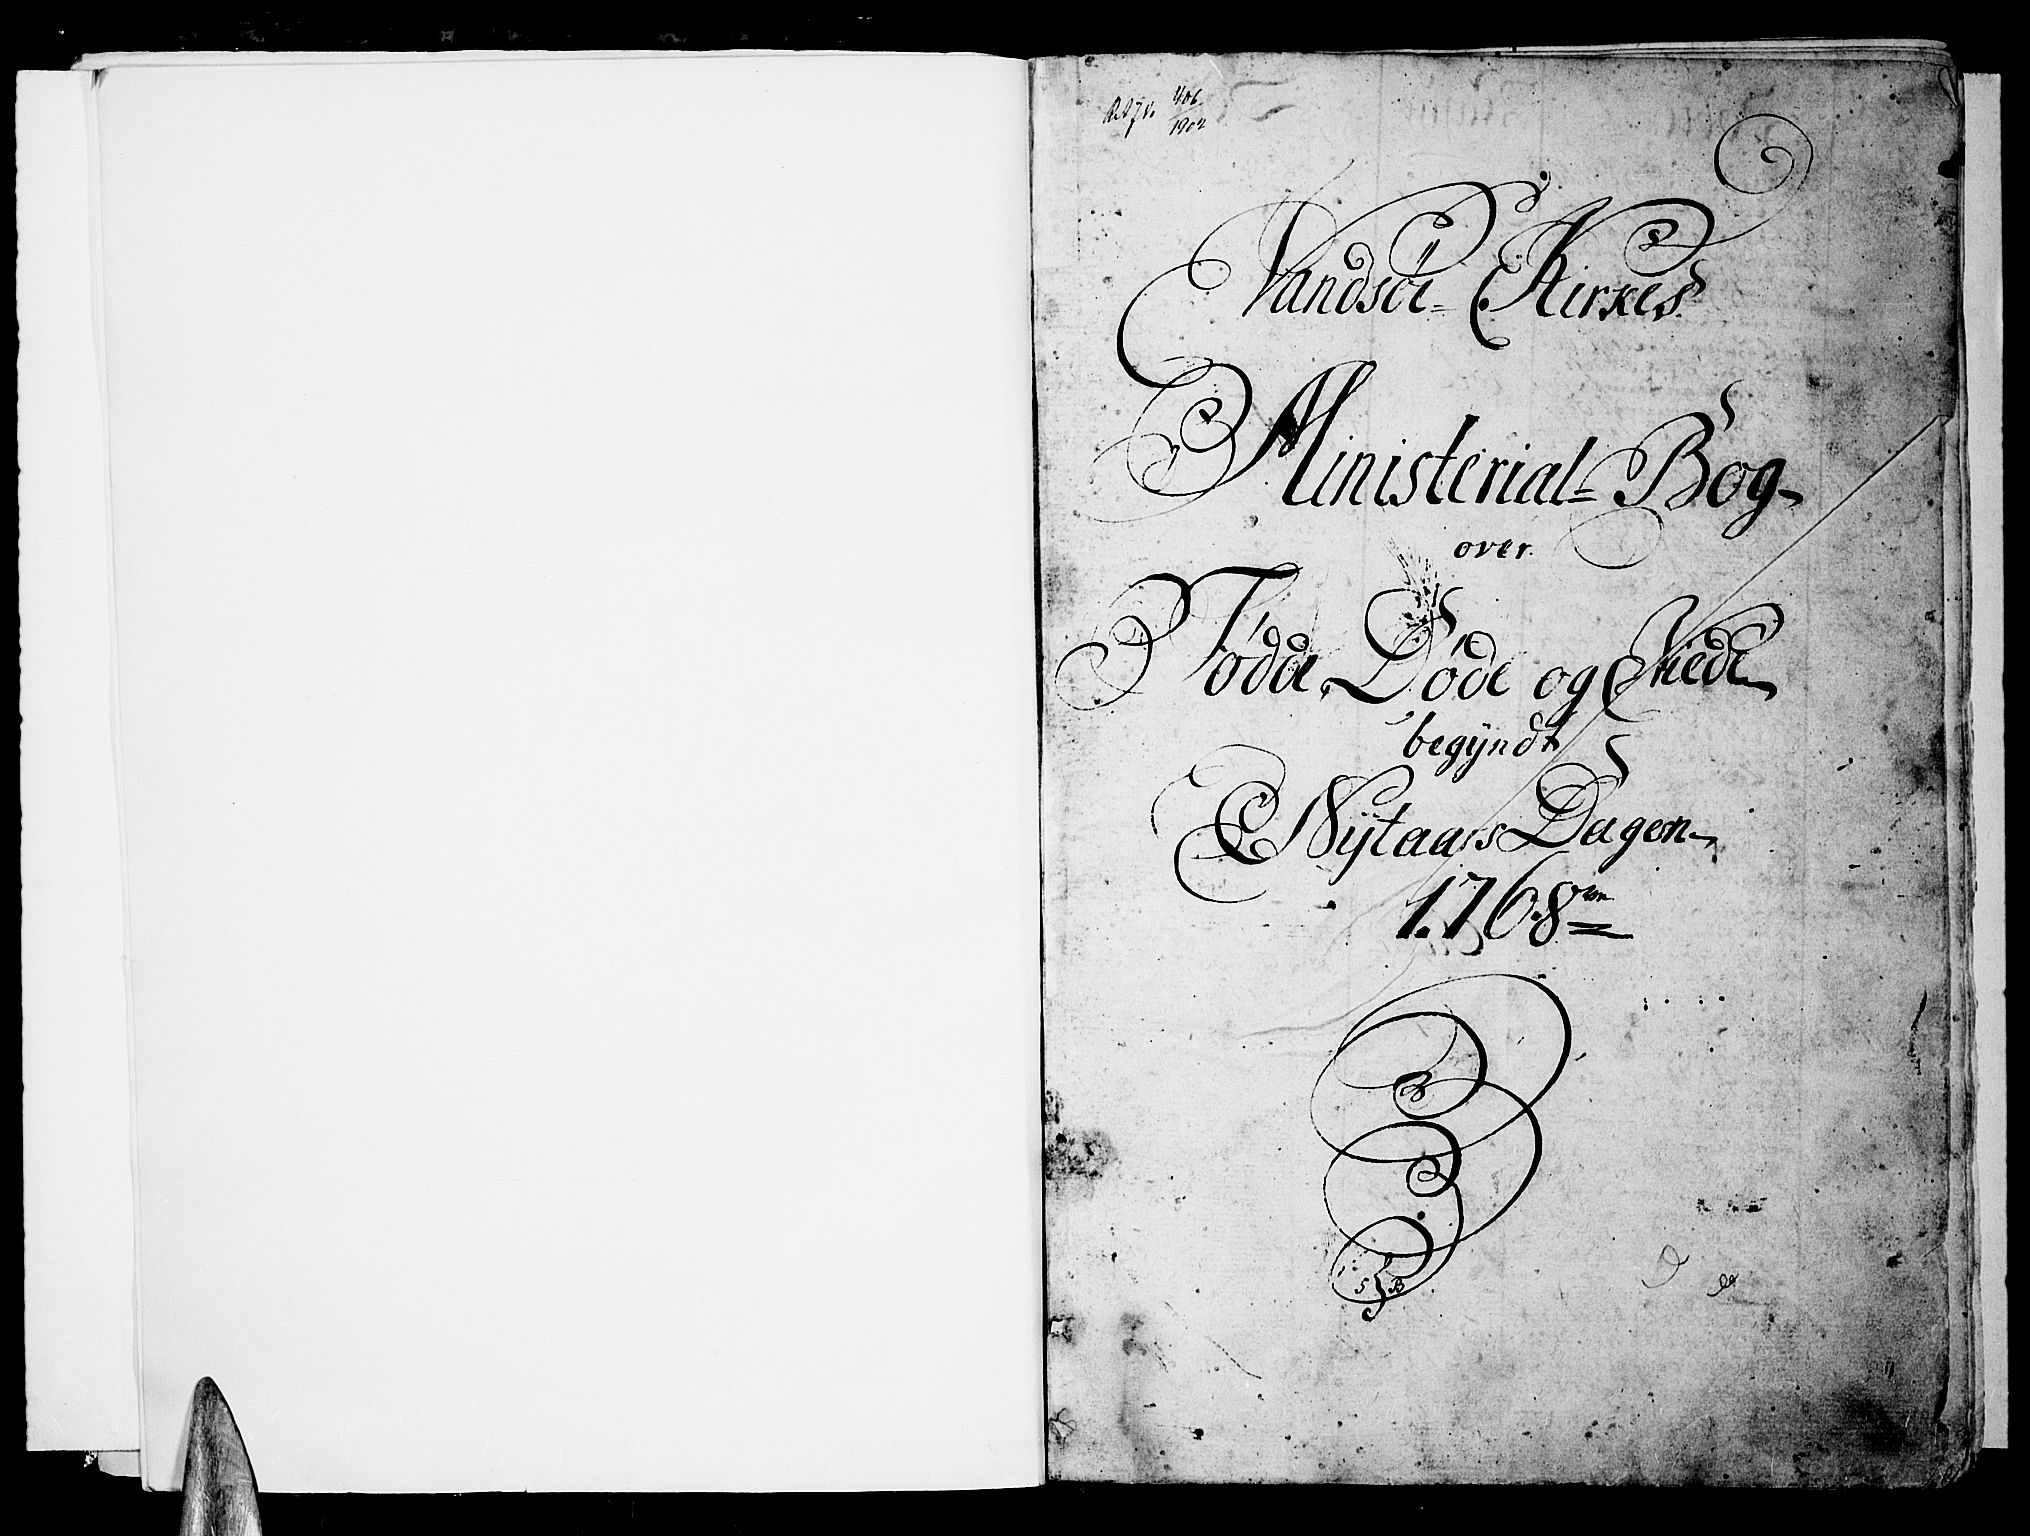 406
1902
Vandsöe- Kirkes
Ministerial= Bog
over
Födde, Döde og Viede
begÿndt
Nÿtaars Dagen
1768